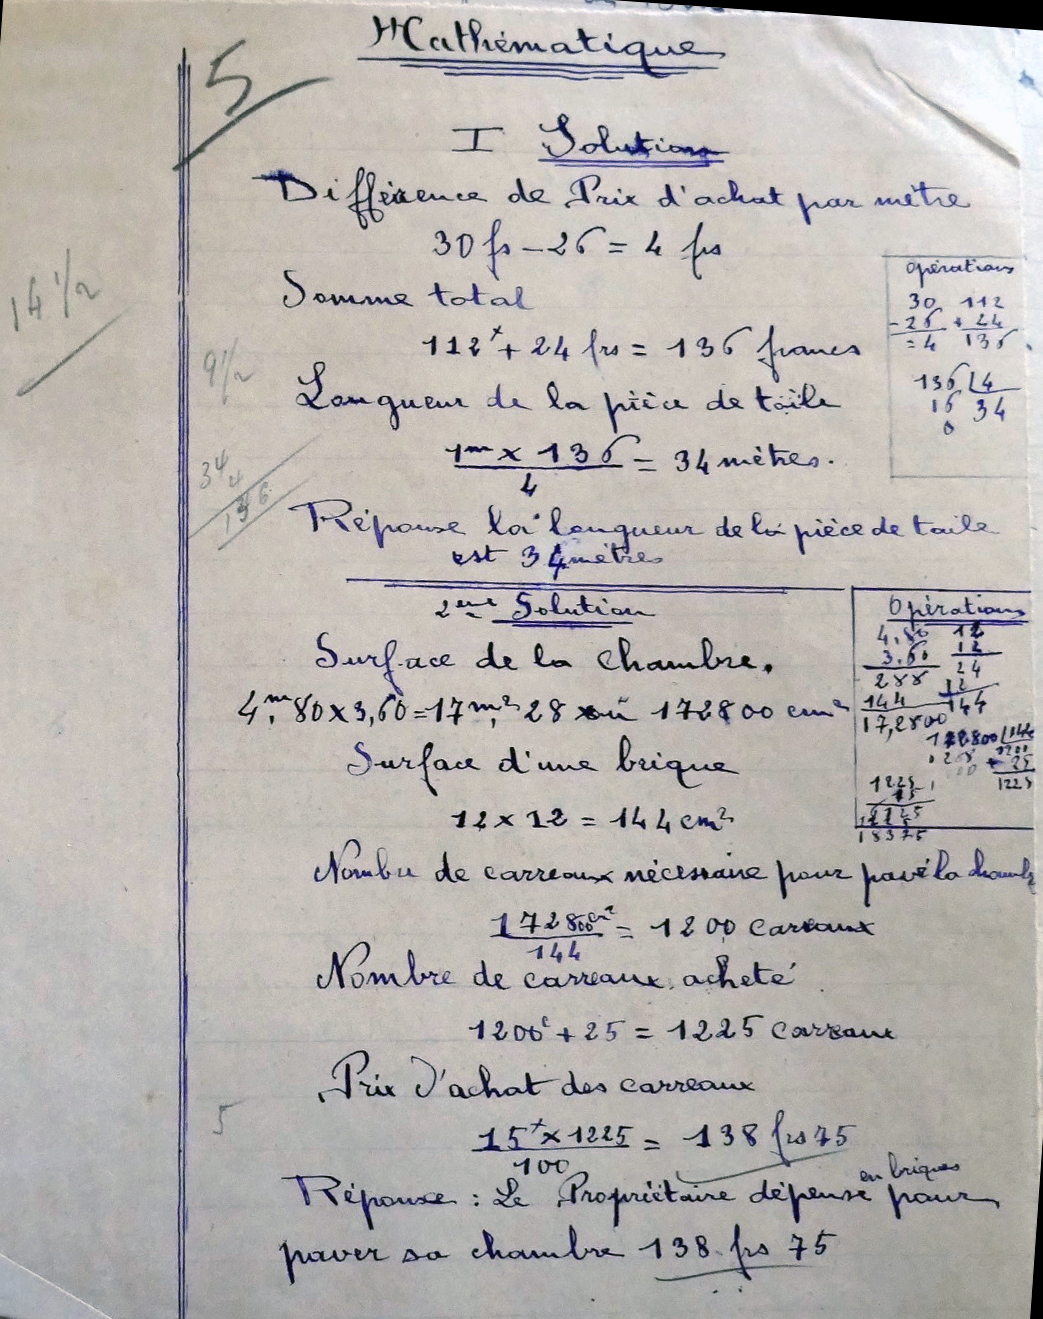 Mathématique
5
I Solution
Différence de Prix d'achat par mètre
30 fs - 26 = 4 frs
Somme total
112 + 24 frs = 136 francs
Longueur de la pièce de toile
1m x 136 = 34 mètres.
4
Réponse la longueur de la pièce de toile
est 34 mètres
Opérations
30 112
- 26 + 24
= 4 136
136 4
16 34
0
14 1/2
9 1/2
34
4
136
2ème Solution
Surface de la chambre.
4,m80 x 3,60 = 17m²,28 ou 172800 cm²
Surface d'une brique
12 x 12 = 144 cm²
Nombre de carreaux nécessaire pour pavé la chamb
172800cm² = 1200 carreaux
144
Nombre de carreaux acheté
1200c + 25 = 1225 carreaux
Prix d'achat des carreaux
15 x 1225 = 138 frs 75
100
Réponse : Le Propriétaire dépense en briques pour
paver sa chambre 138 frs 75
5
Opérations
4,80 12
3,60 12
288 24
144 12
17,2800 144
172800 144
1200
+ 25
1225
1225
15
6125
1225
18375